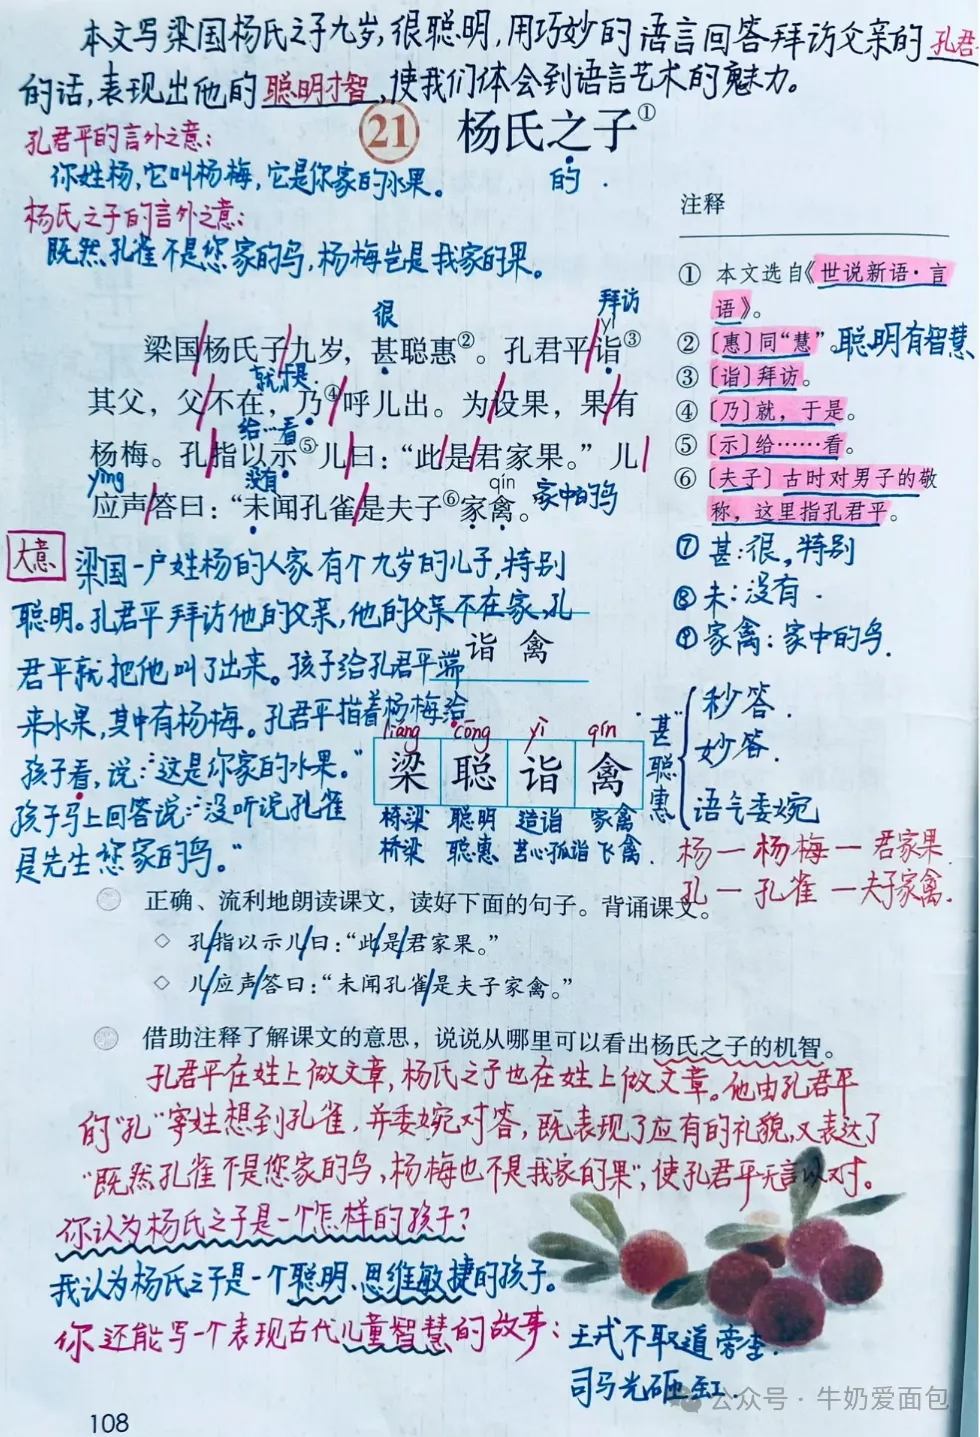 本文写梁国杨氏之子九岁,很聪明,用巧妙的语言回答拜访父亲的孔君
的话,表现出他的聪明才智,使我们体会到语言艺术的魅力。
孔君平的言外之意:
你姓杨,它叫杨梅,它是你家的水果。
杨氏之子的言外之意:
既然孔雀不是您家的鸟,杨梅岂是我家的果。
21 杨氏之子①
的.
注释
① 本文选自《世说新语·言
语》。
② 〔惠〕同“慧”。聪明有智慧
③ 〔诣〕拜访。
④ 〔乃〕就,于是。
⑤ 〔示〕给……看。
⑥ 〔夫子〕古时对男子的敬
称,这里指孔君平。
⑦ 甚:很,特别
⑧ 未:没有.
⑨ 家禽:家中的鸟.
很 拜访
yì
梁国/杨氏子/九岁,甚聪惠②。孔君平/诣③
就于是.
其父,父/不在,乃④/呼儿出。为/设果,果/有
给…看
杨梅。孔/指以示⑤儿/曰:“此/是/君家果。”儿/
yìng 没有 qín
应声/答曰:“未闻孔雀/是夫子⑥家禽。 家中的鸟
大意 梁国一户姓杨的人家有个九岁的儿子,特别
聪明。孔君平拜访他的父亲,他的父亲不在家,孔
君平就把他叫了出来。孩子给孔君平端
来水果,其中有杨梅。孔君平指着杨梅给
孩子看,说:“这是你家的水果。”
孩子马上回答说:“没听说孔雀
是先生您家的鸟。”
诣 禽
liáng cōng yì qín
梁 聪 诣 禽
桥梁 聪明 造诣 家禽
桥梁 聪惠 苦心孤诣 飞禽
甚聪惠
秒答.
妙答.
语气委婉
杨—杨梅—君家果.
孔—孔雀—夫子家禽.
正确、流利地朗读课文,读好下面的句子。背诵课文。
◇ 孔/指以示儿/曰:“此/是/君家果。”
◇ 儿/应声/答曰:“未闻孔雀/是夫子家禽。”
借助注释了解课文的意思,说说从哪里可以看出杨氏之子的机智。
孔君平在姓上做文章,杨氏之子也在姓上做文章。他由孔君平
的“孔”字姓想到孔雀,并委婉对答,既表现了应有的礼貌,又表达了
“既然孔雀不是您家的鸟,杨梅也不是我家的果”,使孔君平无言以对。
你认为杨氏之子是一个怎样的孩子?
我认为杨氏之子是一个聪明、思维敏捷的孩子。
你还能写一个表现古代儿童智慧的故事:王戎不取道旁李.
司马光砸缸.
公众号·牛奶爱面包
108